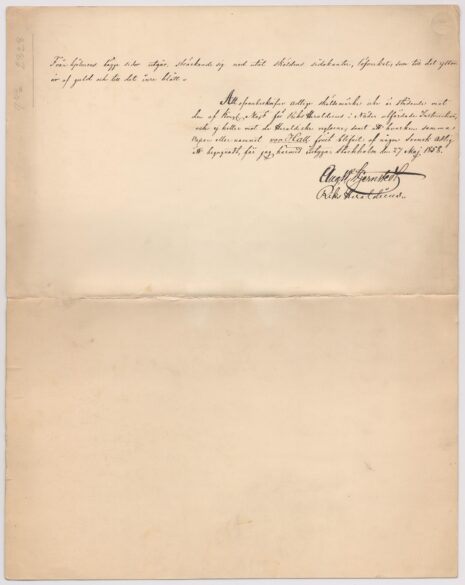 Från hjelmens bägge sidor utgår, sträckande sig ned utåt sköldens sidokanter, löfverket, som till det yttre
är af guld och till det inre blått.
Att ofvanbeskrefne adliga sköldemärke icke är stridande mot
den af Kongl. Maj:t för Riks Heraldicus i Nåder utfärdade Instruction,
och ej heller mot de Heraldiska reglorna, samt att hvarken samma
vapen eller namnet von Hall förut blifvit af någon Svensk Adlig
Ätt begagnadt, får jag härmed intyga. Stockholm den 27 Maj 1858.
Aug W Stjernstedt
Riks Heraldicus.